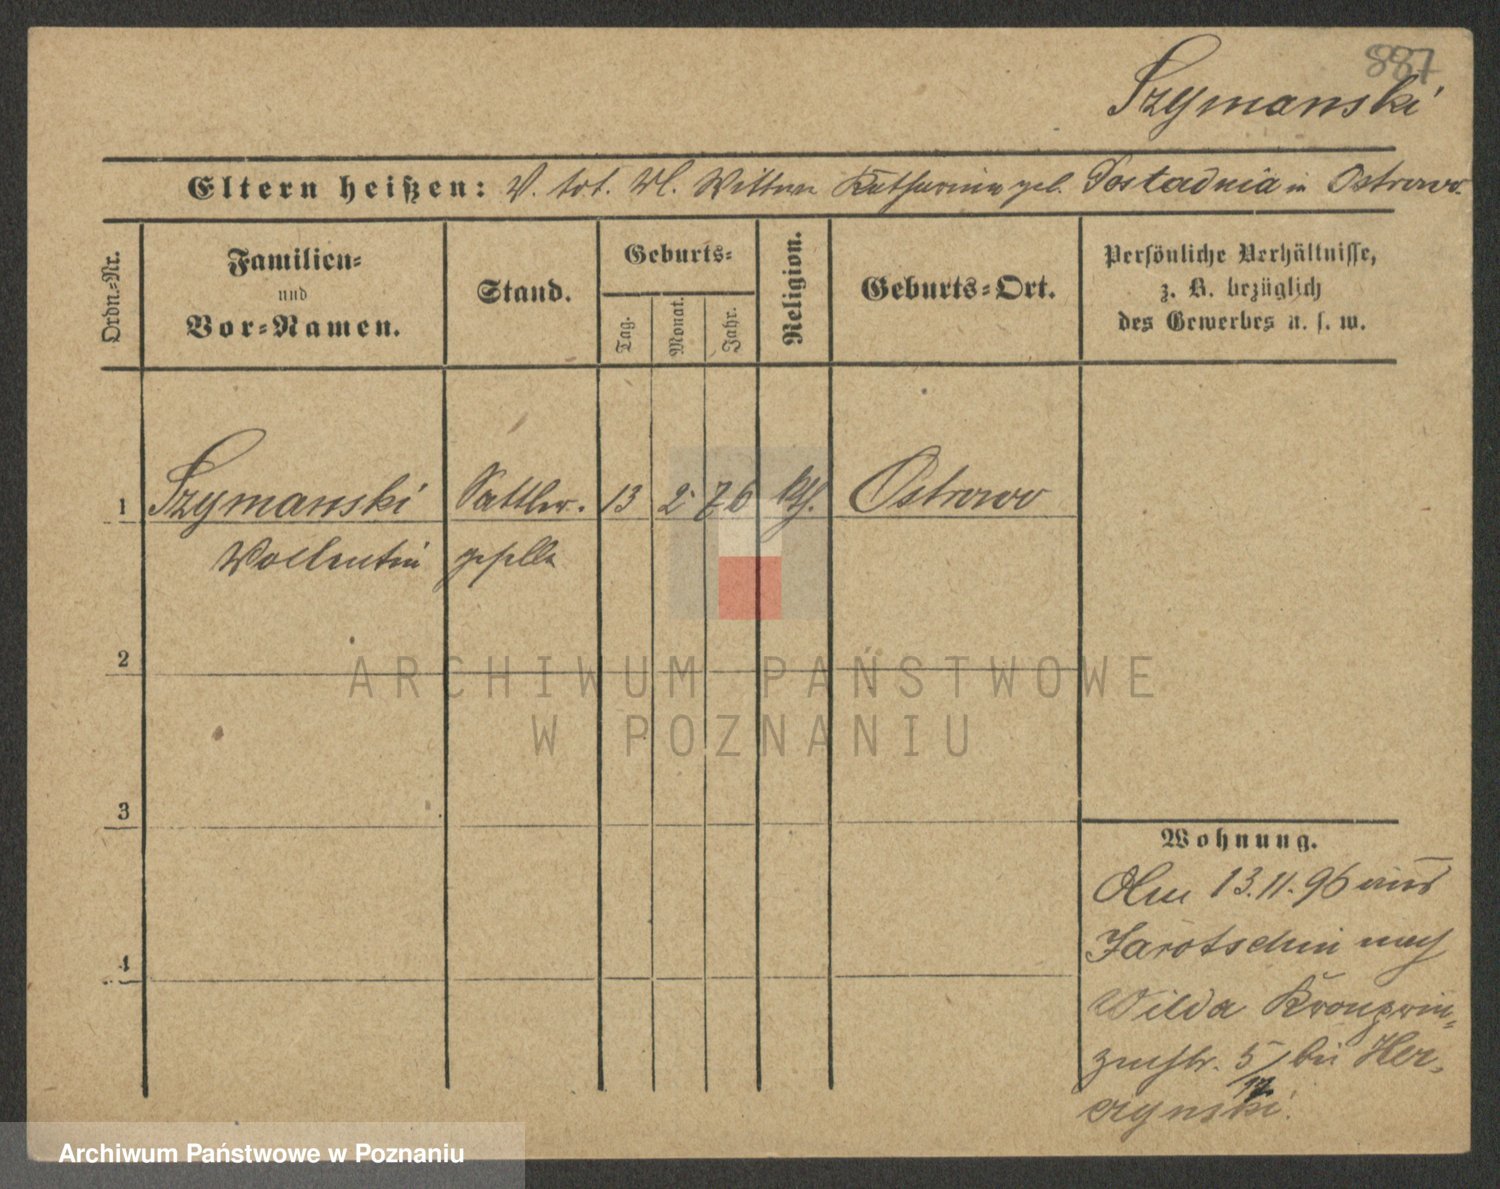 887
Szymanski
Eltern heißen: V. tot. M. Wittwe Katharina geb. Postadnia in Ostrowo.
Ordn.-Nr.
Familien-
und
Vor-Namen.
Stand.
Geburts-
Tag.
Monat.
Jahr.
Religion.
Geburts-Ort.
Persönliche Verhältnisse,
z. B. bezüglich
des Gewerbes u. s. w.
1 Szymanski Sattler- 13 2 76 kth. Ostrowo
Vallentin geselle
2
3
4
Wohnung.
Am 13.11.96 aus
Jarotschin nach
Wilda Kronprin-
zenstr. 5/17 bei Her-
czynski.
ARCHIWUM PAŃSTWOWE
W POZNANIU
Archiwum Państwowe w Poznaniu